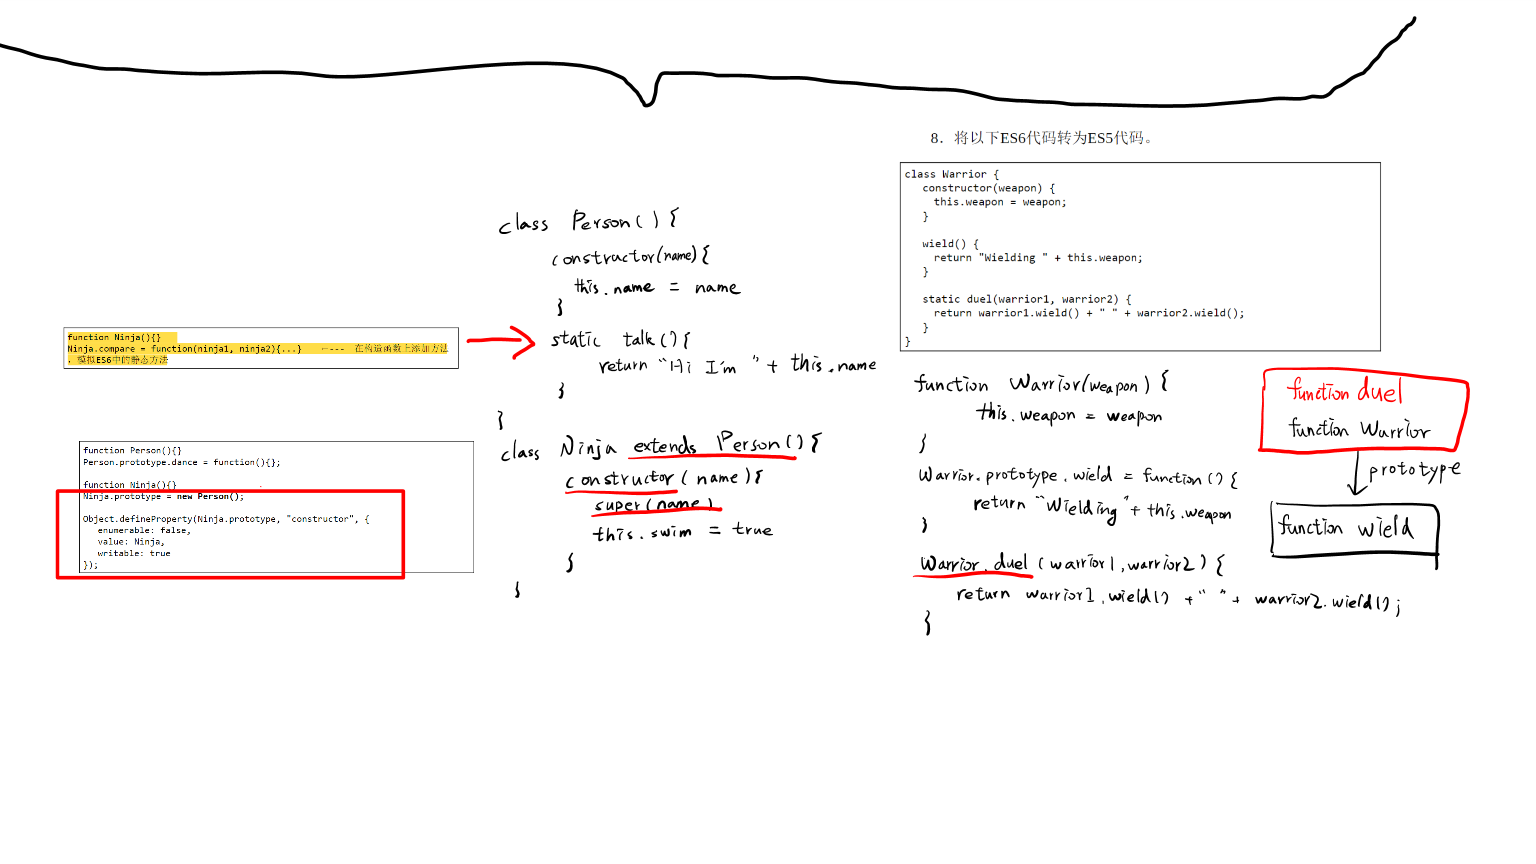 function Ninja(){}
Ninja.compare = function(ninja1, ninja2){...}    ←--- 在构造函数上添加方法
，模拟ES6中的静态方法
function Person(){}
Person.prototype.dance = function(){};
function Ninja(){}
Ninja.prototype = new Person();
Object.defineProperty(Ninja.prototype, "constructor", {
enumerable: false,
value: Ninja,
writable: true
});
class Person(){
constructor(name){
this.name = name
}
static talk(){
return "Hi I'm " + this.name
}
}
class Ninja extends Person(){
constructor(name){
super(name)
this.swim = true
}
}
8. 将以下ES6代码转为ES5代码。
class Warrior {
constructor(weapon) {
this.weapon = weapon;
}
wield() {
return "Wielding " + this.weapon;
}
static duel(warrior1, warrior2) {
return warrior1.wield() + " " + warrior2.wield();
}
}
function Warrior(weapon){
this.weapon = weapon
}
Warrior.prototype.wield = function(){
return "Wielding "+ this.weapon
}
Warrior.duel (warrior1,warrior2){
return warrior1.wield() +" "+ warrior2.wield();
}
function duel
function Warrior
prototype
function wield